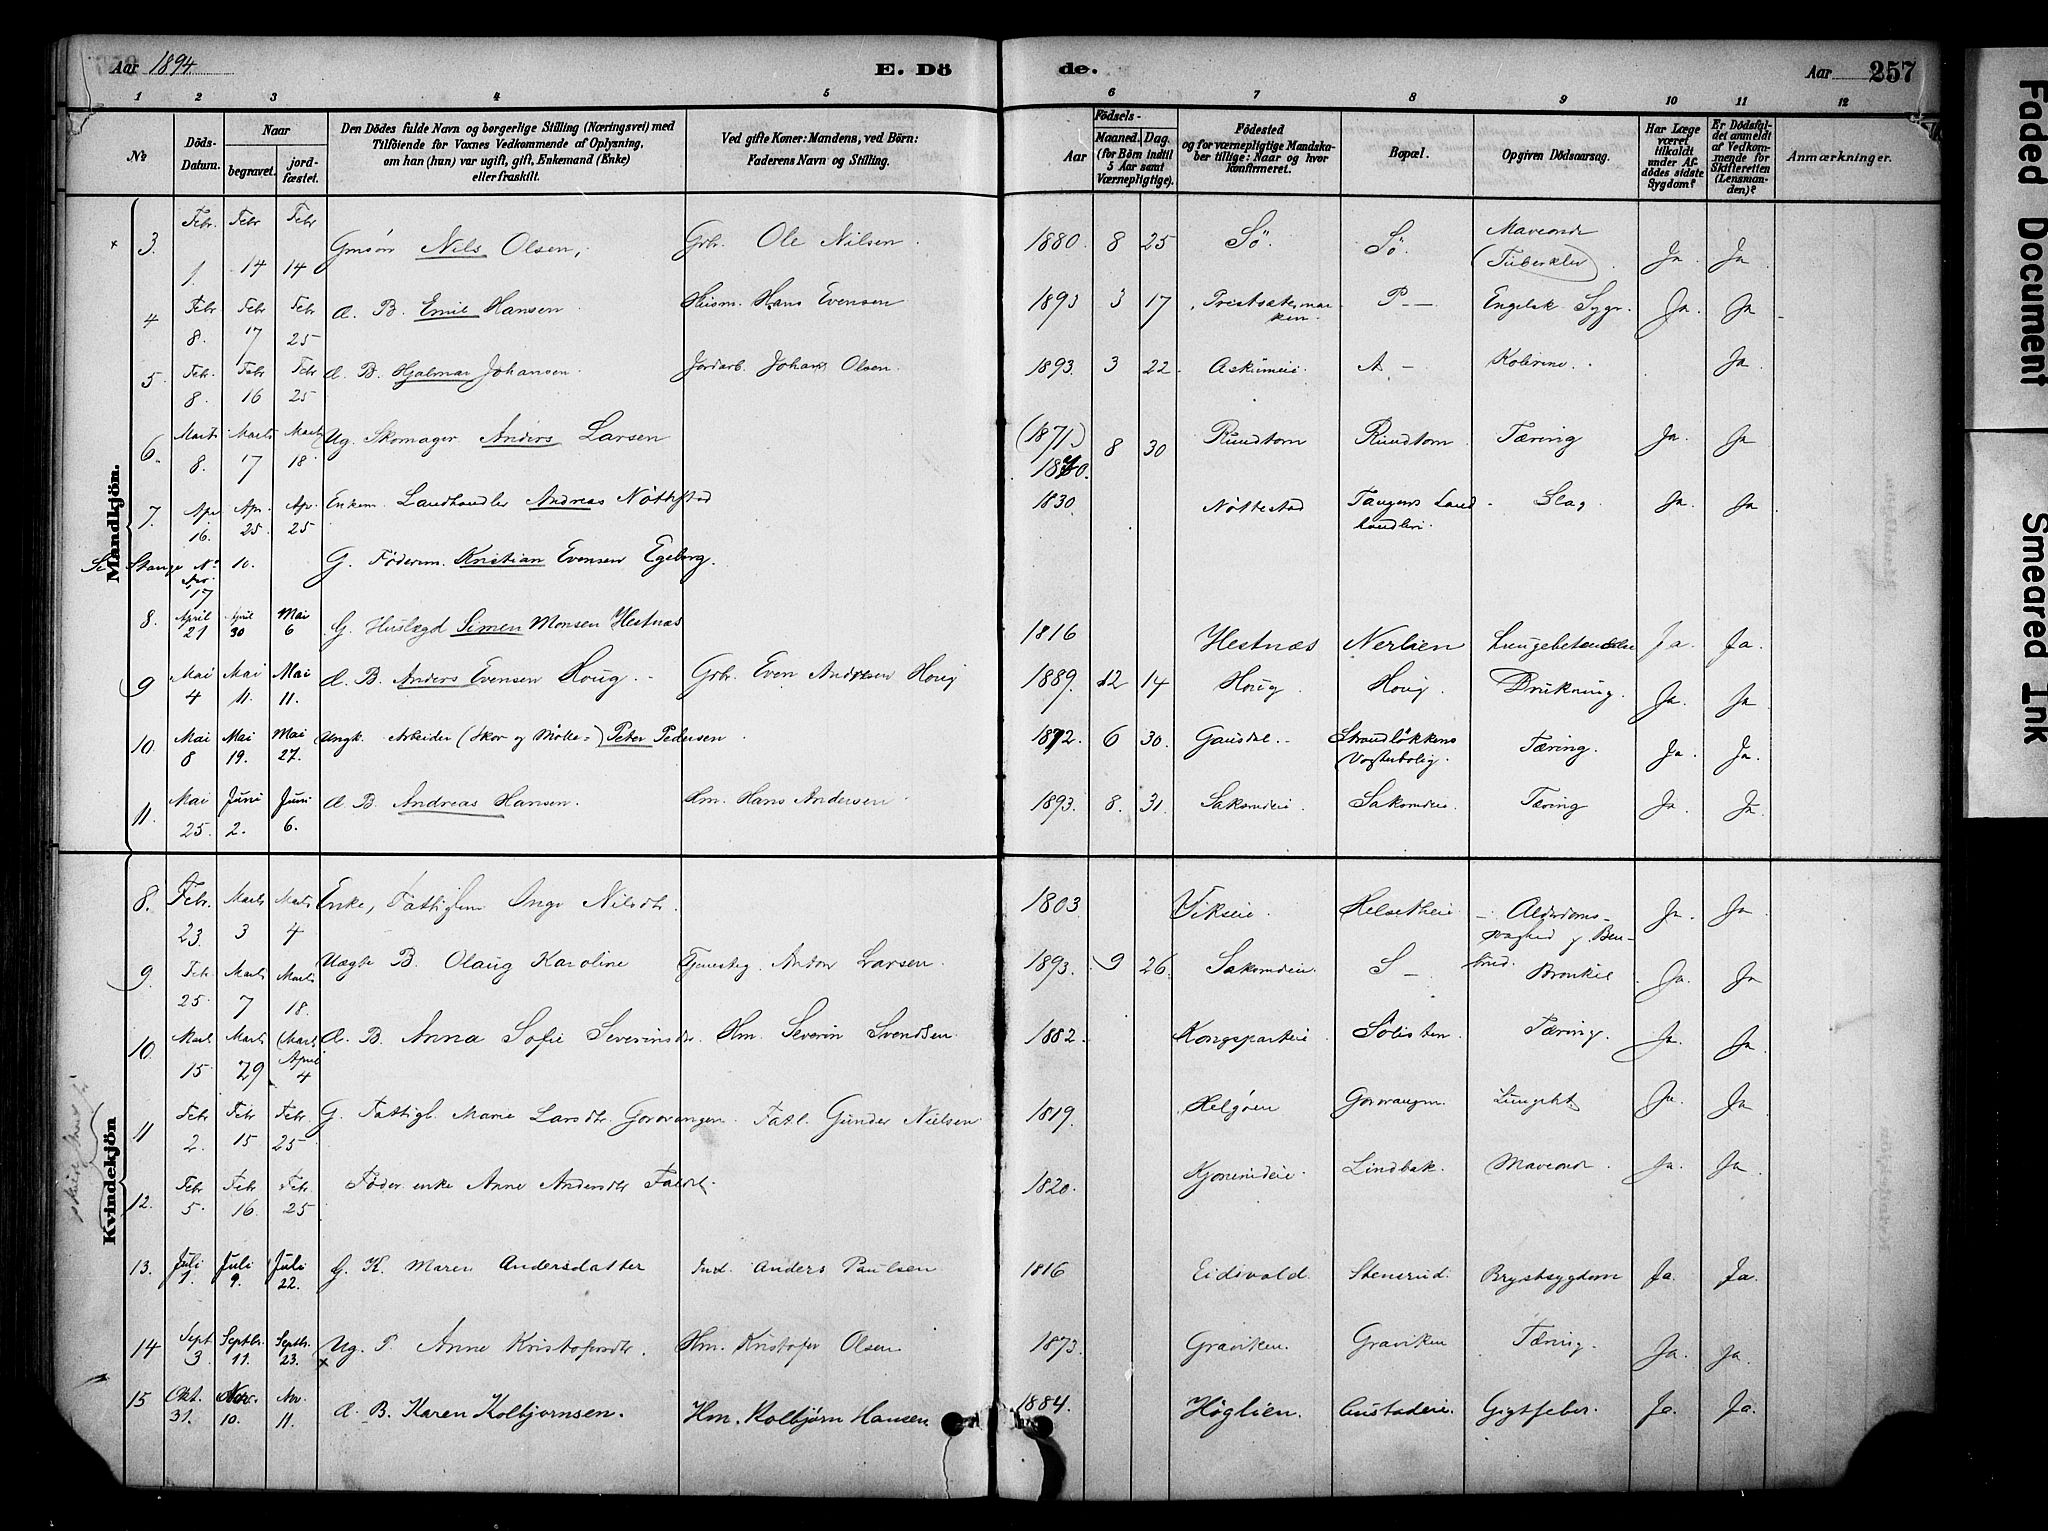 Aar 1894. E. Dö de. Aar 257
1 2 3 4 5 6 7 8 9 10 11 12
No Döds-Datum. Naar begravet. jordfæstet. Den Dödes fulde Navn og borgerlige Stilling (Næringsvei) med Tilföiende for Voxnes Vedkommende af Oplysning, om han (hun) var ugift, gift, Enkemand (Enke) eller fraskilt. Ved gifte Koner: Mandens, ved Börn: Faderens Navn og Stilling. Födsels- Aar Maaned. Dag. (for Börn indtil 5 Aar samt Værnepligtige). Födested og for værnepligtige Mandskaber tillige: Naar og hvor konfirmeret. Bopæl. Opgiven Dödsaarsag. Har Læge været tilkaldt under Afdödes sidste Sygdom? Er Dödsfaldet anmeldt af Vedkommende for Skifteretten (Lensmanden)? Anmærkninger.
Mandkjön.
3 Febr. 1. Febr 14 Febr 14 Gmsön Nils Olsen, Grbr. Ole Nilsen. 1880 8 25 Sö. Sö. Maveonde (Tuberkler) Ja Ja
4 Febr 8. Febr 17 Febr 25 A. B. Emil Hansen. Husm. Hans Evensen 1893 3 17 Prestsætermarken. P — Engelsk Syge. Ja. Ja
5. Febr. 8. Febr 16 Febr 25 A. B. Hjalmar Johansen. Jordarb. Johans Olsen. 1893. 3 22 Askimeie. A — Kolerine. Ja
6. Marts 8. Marts 17 Marts 18 Ug. Skomager Anders Larsen (1871.) 1870. 8 30 Rundtom Rundtom Tæring Ja. Ja
7. Apr 16. Apr. 25. Apr. 25 Enkem. Landhandler Andreas Nöttestad 1830 Nöttestad Tangens Landhandleri. Slag Ja Ja
Se Stange No 10. Apr. 17 G. Föderm. Kristian Evensen Egeberg.
8. April 21 April 30 Mai 6 G. Huslægd Simen Monsen Hestnæs 1816 Hestnæs Nerlien Lungebetændelse Ja. Ja.
9 Mai 4 Mai 11. Mai 11. A. B. Anders Evensen Houg. Grbr. Even Andresen Houg 1889. 12 14 Houg. Houg. Drukning. Ja. Ja
10. Mai 8 Mai 19. Mai 27. Ungk. Arbeider (Skov og Mölle-) Peter Pedersen 1872. 6 30. Gausdal. Strandlökkens Vogterbolig. Tæring. Ja. Ja.
11. Mai 25. Juni 2. Juni 6. A. B. Andreas Hansen. Hm. Hans Andersen 1893. 8. 31. Saksmdeie. Saksmdeie. Tæring Ja. Ja.
Kvindekjön
8. Febr. 23. Marts 3 Marts 4 Enke, Fattiglem Inge Nilsdtr. 1803 Vikseie. Helsetheie Alderdomssvaghed og Benbrud. Ja. Ja
9. Febr. 25 Marts 7 Marts 18. Uægte B. Olaug Karoline Tjenestg. Anton Larsen. 1893. 9 26. Saksmdeie. S — Bronkit Ja. Ja
10. Marts 15 Marts 29 (Marts April 4 A. B. Anna Sofie Severinsdtr. Hm. Severin Svendsen. 1882. Kongsparteie Solisten. Tæring. Ja. Ja
11 Febr 2. Febr 15 Febr 25 G. Fattigl. Marie Larsdtr Gorovangen. Fatl. Gunder Nielsen 1819. Helgöen Gorovangen Lungebt. Ja. Ja
12. Febr 5. Febr 16 Febr. 25 Föder. enke Anne Andersdtr Faldet. 1820. Kjonerudeie. Lindbak. Maveonde. Ja. Ja
13. Juli 1. Juli 9. Juli 22. G. K. Maren Andersdatter Ind. Anders Paulsen 1816 Eidsvold. Stensrud. Brystsygdom Ja. Ja.
14 Sept 3. Septbr. 11. Septbr. 23. Ug. P. Anne Kristofersdtr. Hm. Kristofer Olsen 1873. Graviken. Graviken Tæring. Ja. Ja.
15 Okt. 31. Nov. 10. Nov. 11. A. B. Karen Kolbjørnsen. Hm. Kolbjørn Hansen. 1884. Höglien. Gustaderie. Gigtfeber. Ja. Ja.
Faded Document
Smeared Ink